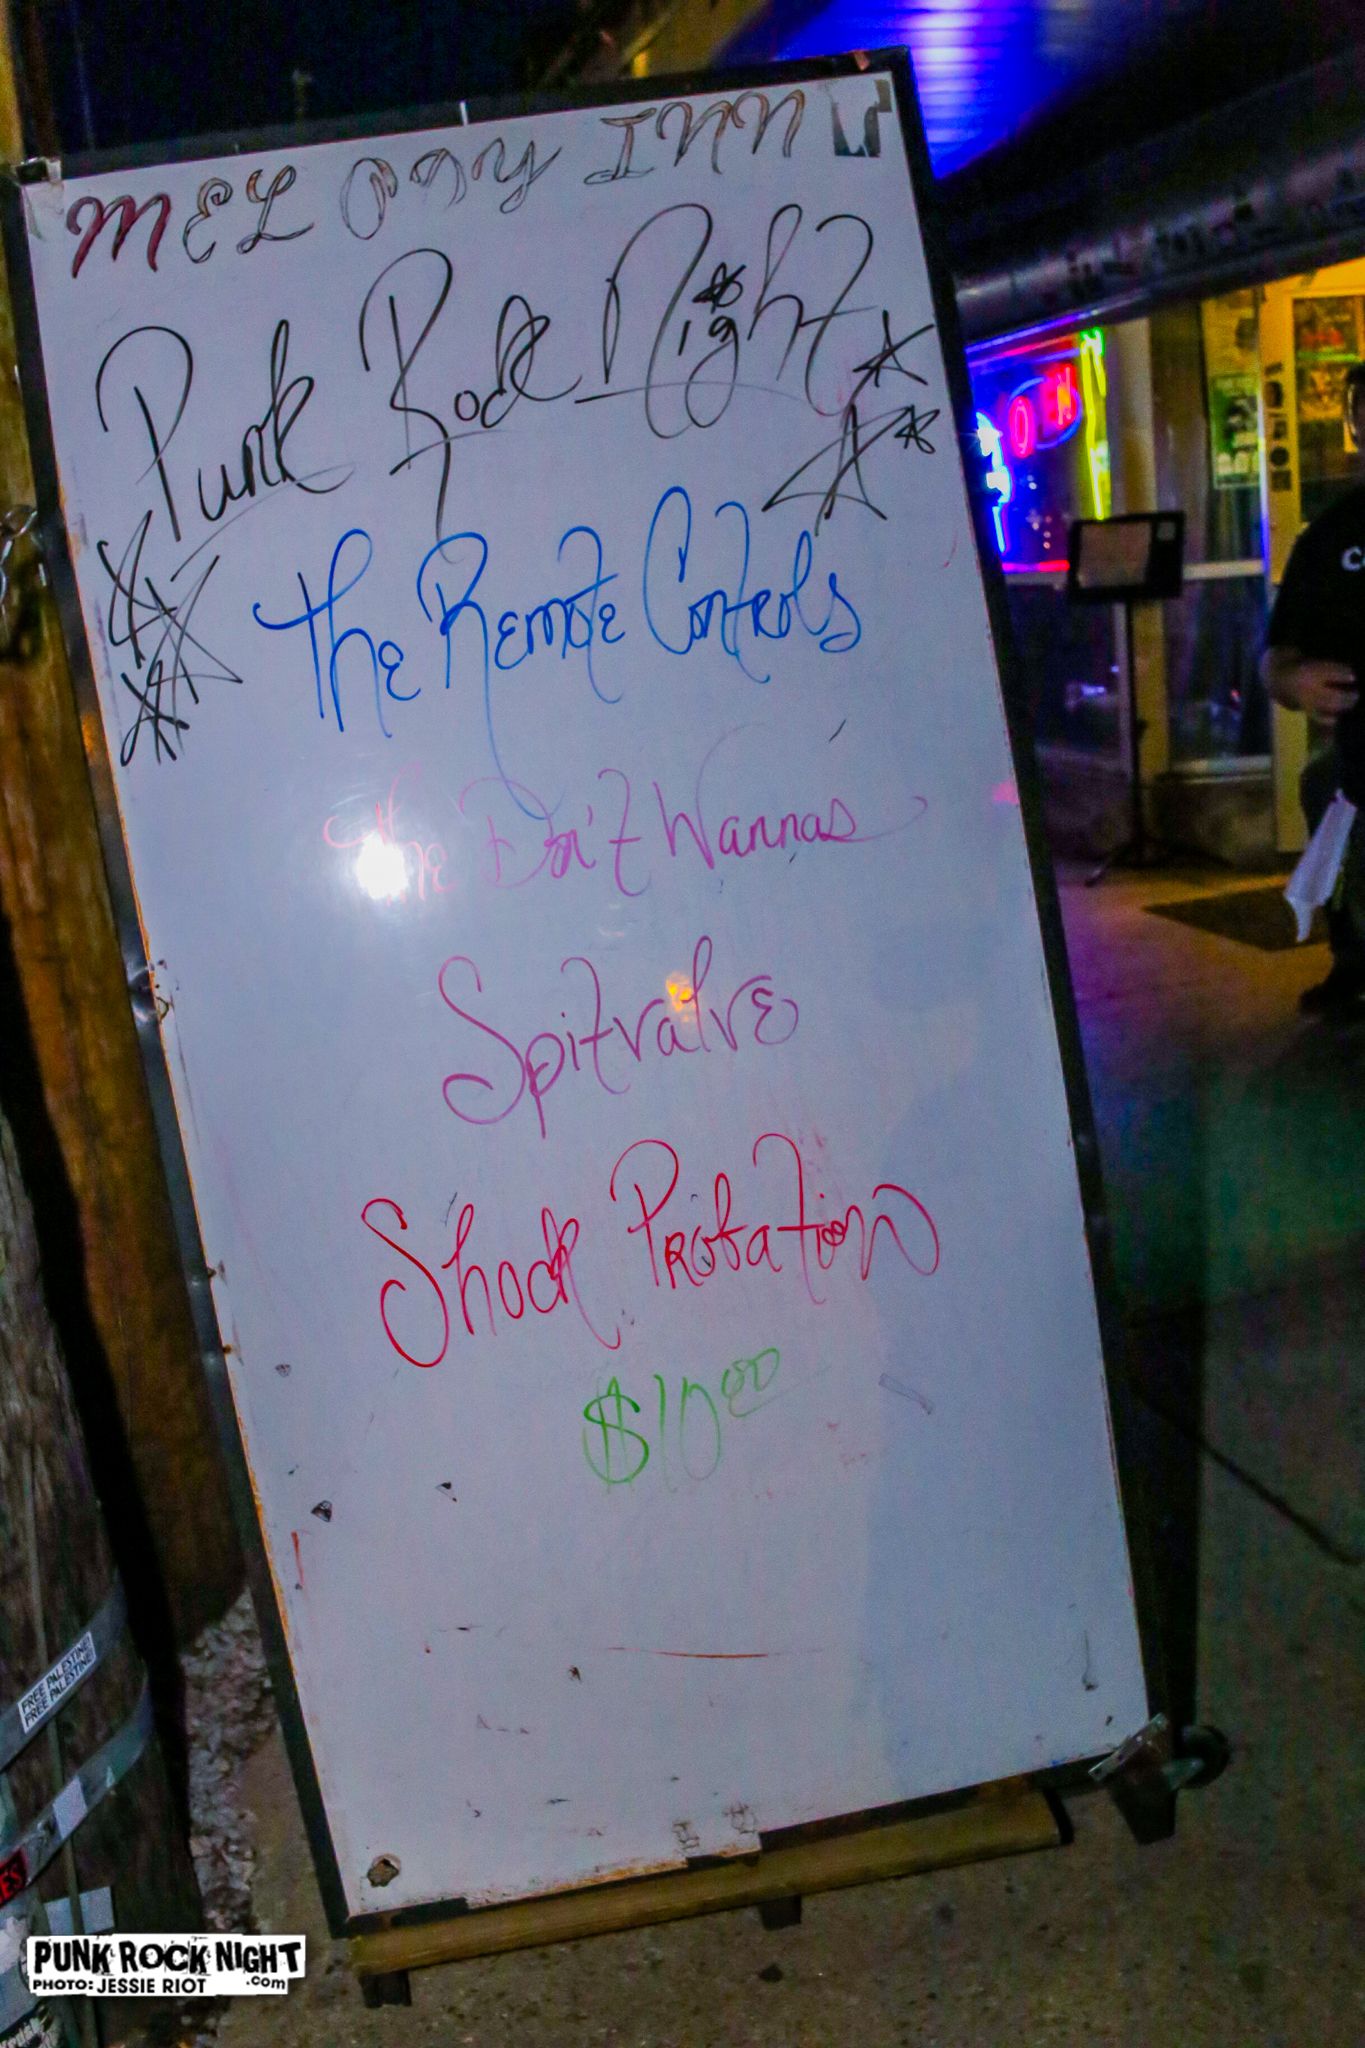 MELODY INN
Punk Rock Night
The Remote Controls
The Don't Wannas
Spitvalve
Shock Probation
$10.00
FREE PALESTINE!
FREE PALESTINE!
PUNK ROCK NIGHT
.com
PHOTO: JESSIE RIOT